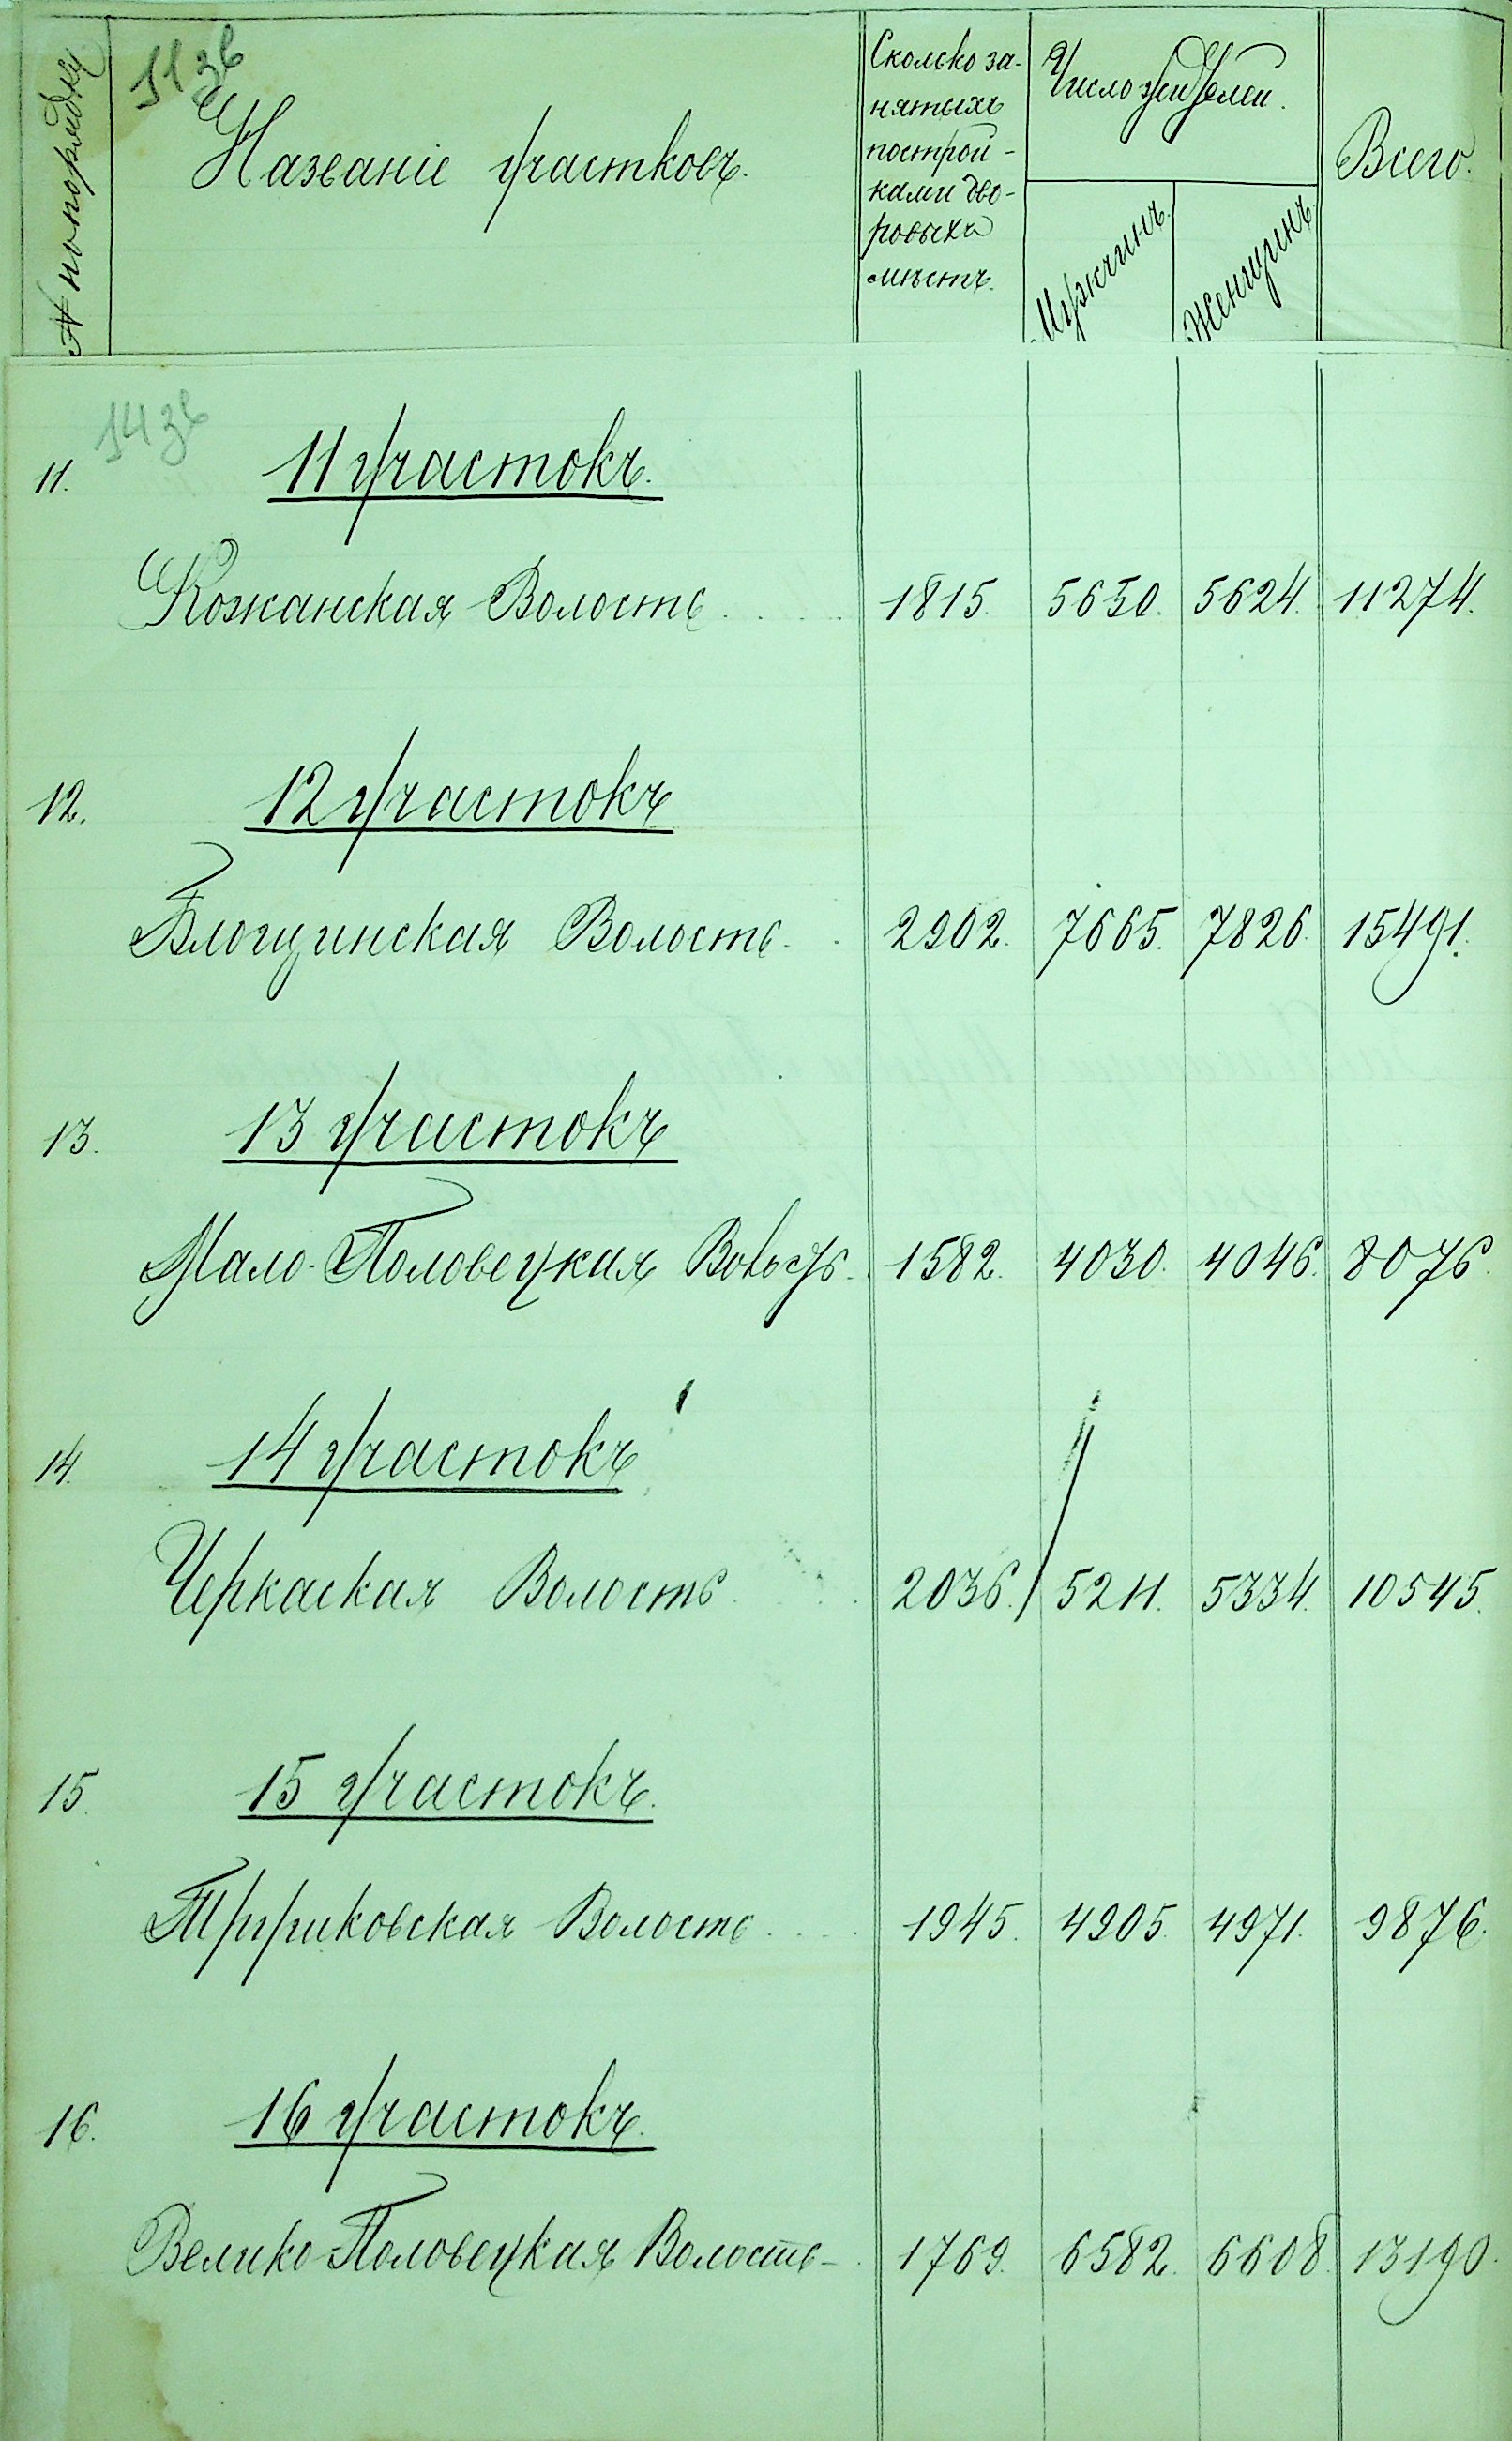 № по порядку
11 зв
Названіе участковъ.
Сколько за-
нятыхъ
построй-
ками дво-
ровыхъ
мѣстъ.
Число жителей.
Мужчинъ.
Женщинъ.
Всего.
14 зв
11. 11 участокъ.
Кожанская Волость . . . . 1815. 5650. 5624. 11274.
12. 12 участокъ
Блощинская Волость . . 2902. 7665. 7826. 15491.
13. 13 участокъ
Мало-Половецкая Волость. 1582. 4030. 4046. 8076.
14. 14 участокъ
Черкаская Волость . . . . 2036. 5211. 5334. 10545.
15. 15 участокъ.
Трушковская Волость . . . . 1945. 4905. 4971. 9876.
16. 16 участокъ.
Велико-Половецкая Волость - 1769. 6582. 6608. 13190.